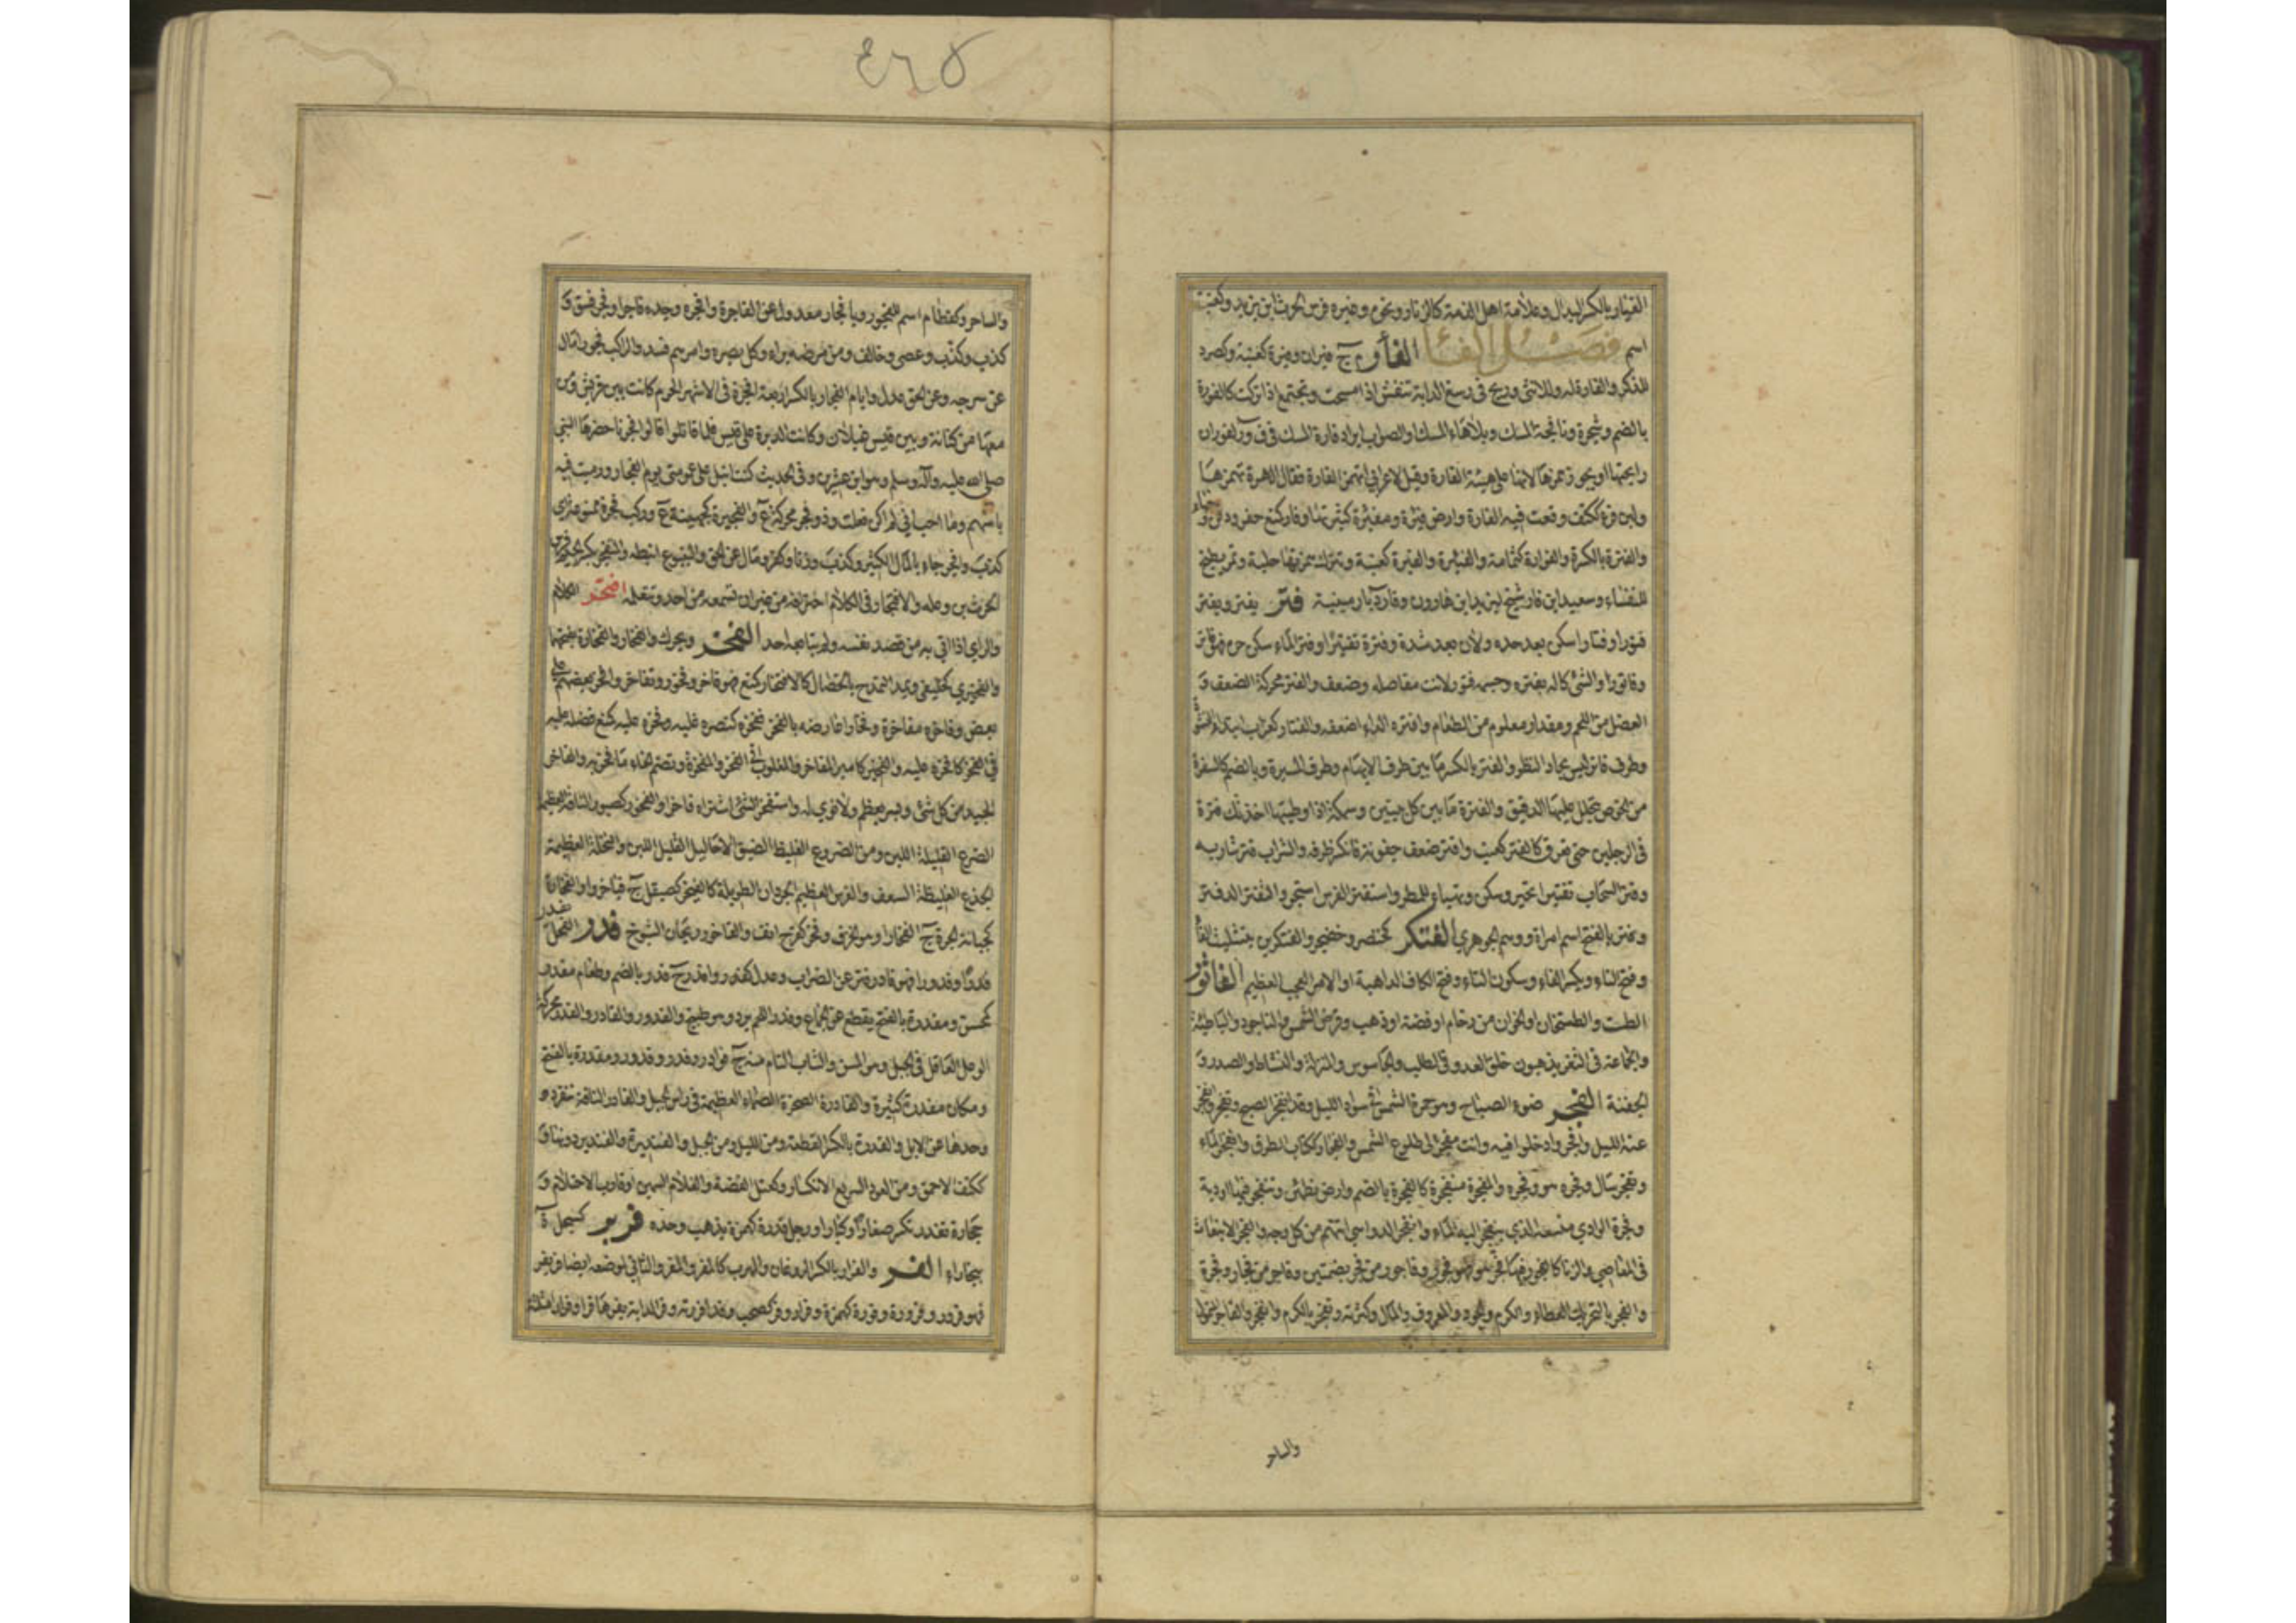 الغيار بالكسر البدال وعلامة اهل الذمة كالزنار ونحوه وغيره فرس الحرث ابن يزيد وكعنب
اسم فصل الفاء الفأر ج فيران وفيرة كعنبة وكصرد
للذكر والفارة له وللانثى وريح في رسغ الدابة تنفش اذا مسحت وتجتمع اذا تركت كالفورة
بالضم وشجرة ونافجة المسك وبلا هاء المسك او الصواب ايراد فارة المسك في ف و ر لفوران
رايحتها او يجوز همزها لانها على هيئة الفارة وقيل لاعرابي اتهمز الفارة فقال الهرة تهمزها
ولبن فئر ككتف وقعت فيه الفارة وارض فئرة ومفئرة كثرتها وفار كمنع حفر ودفن وخباء
والفئرة بالكسرة والفؤارة كثمامة والفئيرة والفئرة كعنبة وتترك همزتها حلبة وتمر يطبخ
للنفساء وسعيد ابن فار شيخ ليزيد ابن هارون وفار د بارمينية فتر يفتر ويفتر
فتورا وفتارا سكن بعد حده ولان بعد شدة وفتره تفتيرا وفتر الماء سكن حره فهو فاتر
وفاتورا والشئ كاله بفتره وجسمه فتورا لانت مفاصله وضعف والفتر محركة الضعف و
العضل من اللحم ومقدار معلوم من الطعام وافتره الداء اضعفه والفتار كغراب ابتداء النشوة
وطرف فاتر ليس بحاد النظر والفتر بالكسر ما بين طرف الابهام وطرف المسبرة وبالضم كالسفرة
من الخوص ينخل عليها الدقيق والفترة ما بين كل نبيين وسمكة اذا وطيتها اخذتك فترة
في الرجلين حتى تعرق كالفتر كهيت وافتر ضعف جفونه فانكسر طرفه والشراب فتر شاربه
وفتر السحاب تفتيرا تحير وسكن وتهياء للمطر واستفتر الفرس استجر والتفتر الدفتر
وفتر بالفتح اسم امراة ووهم الجوهري الفتكر كخنصر وخضير والفتكرين بتثليث الفاء
وفتح التاء وبكسر الفاء وسكون التاء وفتح الكاف الداهية او الامر العجب العظيم الفاثور
الطست والطستخان او الخوان من رخام او فضة او ذهب وقرص الشمس والناجود والباطية
والجماعة في الثغر يذهبون خلف العدو في الطلب والجاسوس والمنزلة والنشاط والصدر و
الجفنة الفجر ضوء الصباح وهو حمرة الشمس في سواد الليل وقد انفجر الصبح وتفجر وانفجر
عنه الليل وافجروا دخلوا فيه وانت مفجر الى طلوع الشمس والفجار ككتاب الطرق وانفجر الماء
وتفجر سال وفجره هو وفجره والفجرة منفجرة كالفجرة بالضم وارض تطمئن وتنفجر فيها اودية
وفجرة الوادي متسعه الذي ينفجر اليه الماء وانفجرت الدواهي اتتهم من كل وجه والفجر الانبعاث
في المعاصي والزنا كالفجور فيهما فجر فهو فجور وفاجور من فجر بضمتين وفاجر من فجار وفجرة
والفجر بالتحريك العطاء والكرم والجود والمعروف والمال وكثرته وتفجر بالكرم وانفجر والفاجر المتمول
والساحر
٤٦٥
والساحر وكقطام اسم للفجور ويا فجار معدولة عن الفاجرة وافجره وجده فاجرا وفجر فسق و
كذب وكذّب وعصى وخالف ومن مرضه براء وكل بصره وامرهم فسد والراكب فجورا مال
عن سرجه وعن الحق عدل وايام الفجار بالكسر اربعة افجرة في الاشهر الحرم كانت بين قريش ومن
معها من كنانة وبين قيس عيلان وكانت الدبرة على قيس فلما قاتلوا قالوا فجرنا حضرها النبي
صلى الله عليه وآله وسلم وهو ابن عشرين وفي الحديث كنت انبل على عمومتي يوم الفجار ورميت فيه
باسهم وما احب اني لم اكن فعلت وذو فجر محركة ع والفجيرة كجهينة ع وركب فجرة ممنوعة اي
كذب وافجر جاء بالمال الكثير وكذب وزنا وكفر ومال عن الحق والينبوع انبطه والمنفجر بكسر الجيم فرس
الحرث بن وعلة والافتجار في الكلام اختراقه من غير ان تسمعه من احد وتتعلمه افتحر الكلام
والراي اذا اتى به من قصد نفسه ولم يتابعه احد الفخر ويحرك والفخار والفخارة بفتحهما
والفخيرى كخليفى ويمد التمدح بالخصال كالافتخار كمنع فهو فاخر وفخور وتفاخر والفخر بعضهم على
بعض وفاخره مفاخرة وفخارا عارضه بالفخر ففخره كنصره غلبه وفخره عليه كمنع فضله عليه
في الفخر كافخره عليه والفخير كامير المفاخر والمغلوب في الفخر والمفخرة وتضم الخاء ما فخر به والفاخر
الجيد من كل شئ وبسر يعظم ولا نوى له واستفخر الشئ اشتراه فاخرا والفخور كصبور الناقة العظيمة
الضرع القليلة اللبن ومن الضروع الغليظ الضيق الاحاليل القليل اللبن والنخلة العظيمة
الجذع الغليظة السعف والفرس العظيم الجردان الطويلة كالفيخر كصيقل ج فياخر او الفخارة
كجبانة الجرة ج الفخار او هو الخزف وفخر كفرح انف والفاخور ريحان الشيوخ فدر الفحل يفدر
فدرا وفدورا فهو فادر فتر عن الضراب وعدل كفدر وافدر ج فدر بالضم وطعام مفدر
كمحسن ومفدرة بالفتح يقطع عن الجماع وفدر اللحم برد وهو طبيخ والفدور والفادر والفدر محركة
الوعل العاقل في الجبل وهو المسن والشاب التام منه ج فوادر وفدر وفدور ومفدرة بالفتح
ومكان مفدرة كثيرة والفادرة الصخرة الصماء العظيمة في راس الجبل والفادر الناقة تنفرد و
وحدها عن الابل والفدرة بالكسر القطعة ومن الليل ومن الجبل والفنديرة والفندير دونها و
ككتف الاحمق ومن العود السريع الانكسار وكعتل الفضة والغلام السمين او قارب الاحتلام و
حجارة تفدر تكسر صغارا وكبارا ورجل فدرة كهمزة يذهب وحده فربر كسبحل ة
ببخاراء الفر والفرار بالكسر الروغان والهرب كالمفر والمفر والثاني لموضعه ايضا فر يفر
فهو فرور وفرورة وفررة كهمزة وفرار وفر كصحب وقد افررته وفر الدابة يفرها فرا وفرارا مثلثة